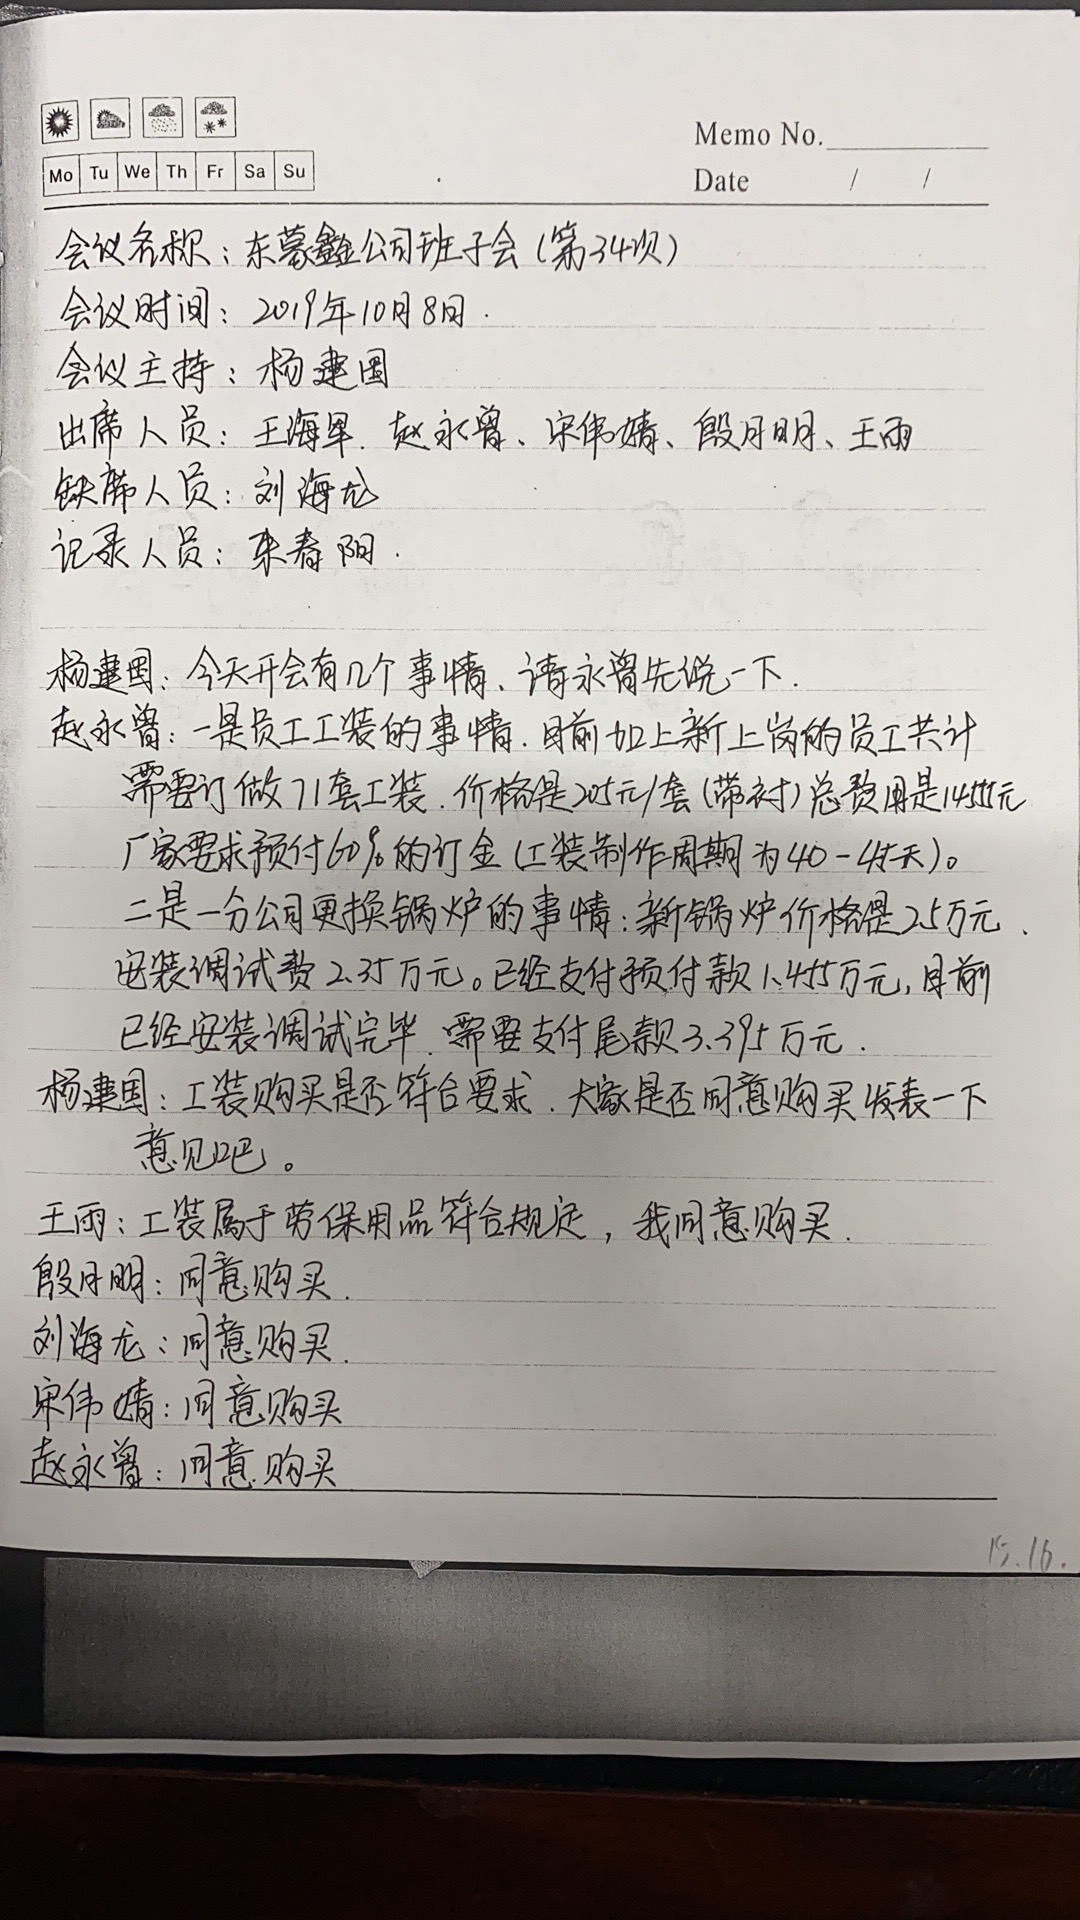 Memo No.
Mo Tu We Th Fr Sa Su
Date / /
会议名称：东蒙鑫公司班子会（第34次）
会议时间：2019年10月8日.
会议主持：杨建国
出席人员：王海军、赵永曾、宋伟婧、殷月明、王雨
缺席人员：刘海龙
记录人员：来春阳.
杨建国：今天开会有几个事情、请永曾先说一下.
赵永曾：一是员工工装的事情.目前加上新上岗的员工共计
需要订做71套工装.价格是205元/套（带衬）总费用是14555元
厂家要求预付60%的订金（工装制作周期为40-45天）。
二是一分公司更换锅炉的事情：新锅炉价格是2.5万元.
安装调试费2.35万元。已经支付预付款1.455万元，目前
已经安装调试完毕.需要支付尾款3.395万元.
杨建国：工装购买是否符合要求.大家是否同意购买发表一下
意见吧。
王雨：工装属于劳保用品符合规定，我同意购买.
殷月明：同意购买.
刘海龙：同意购买.
宋伟婧：同意购买
赵永曾：同意购买
15.16.